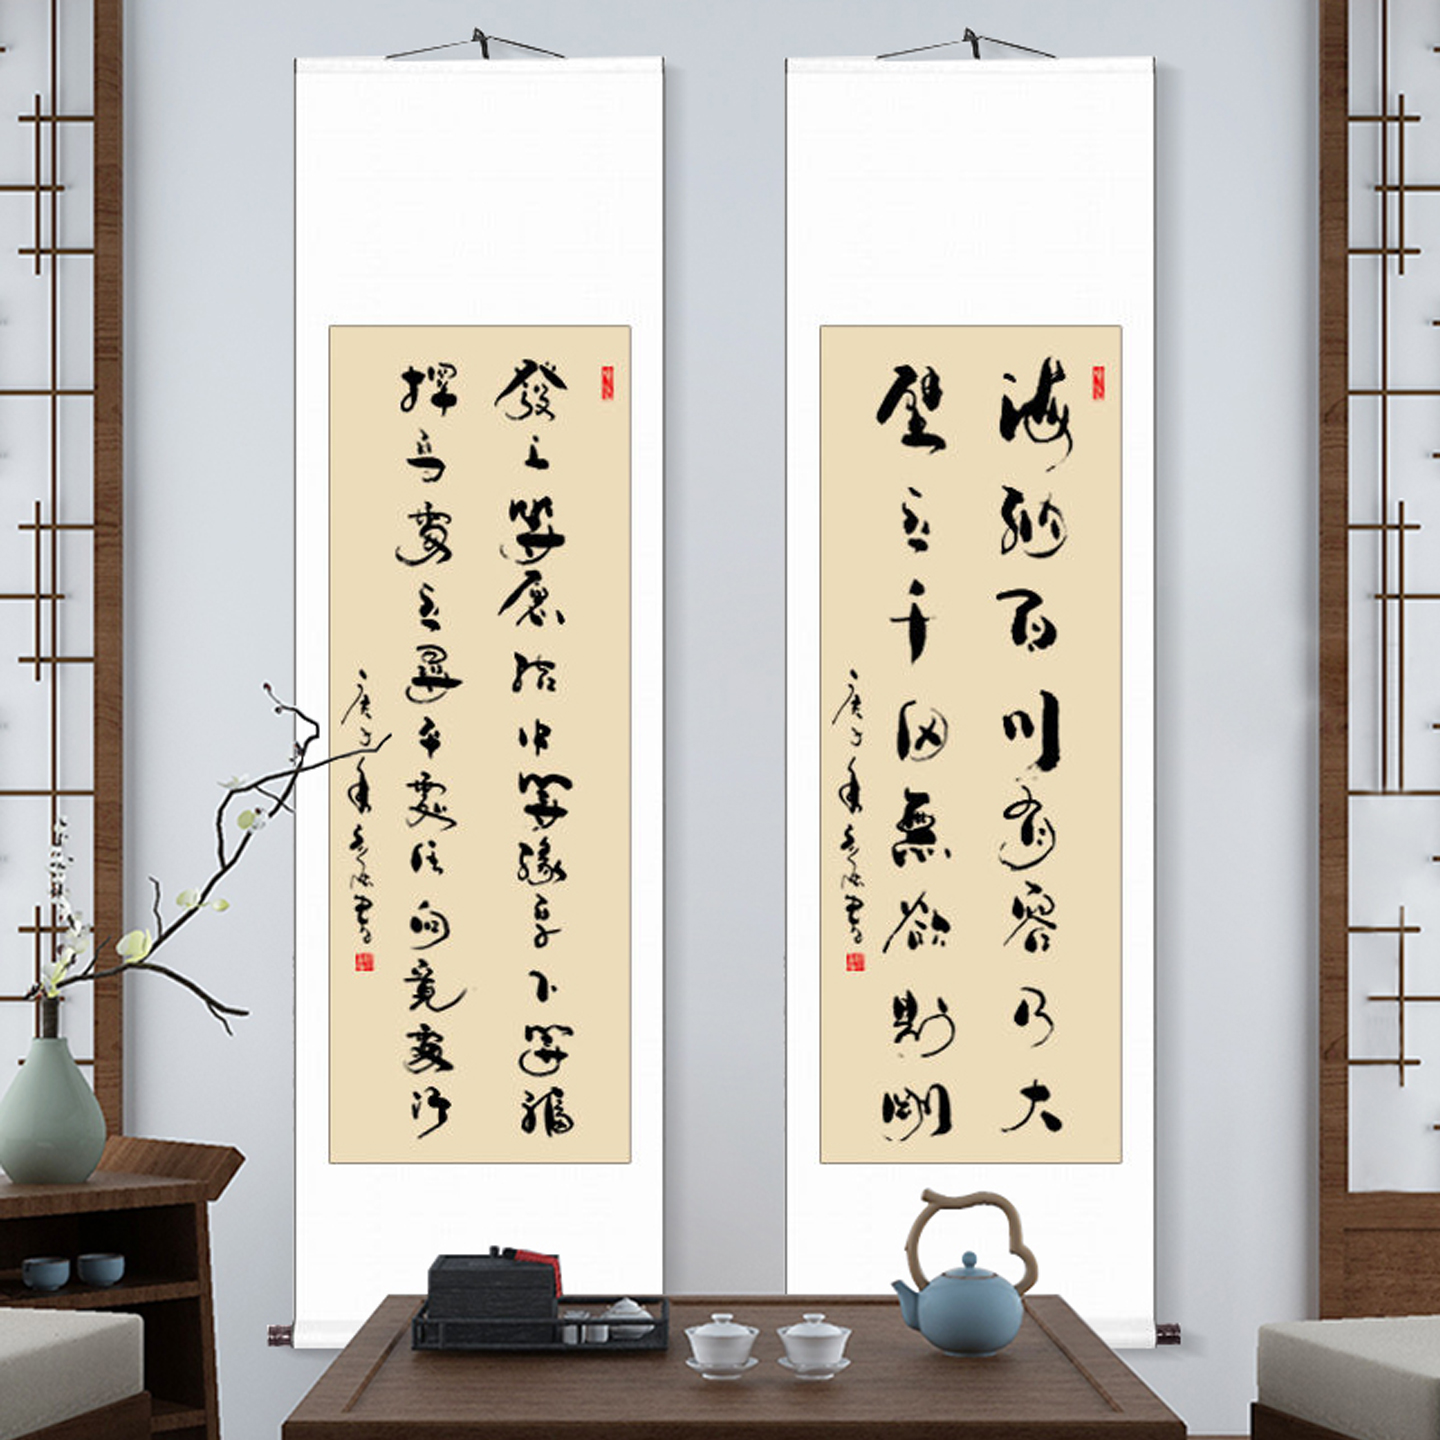 海納百川有容乃大
壁立千仞無欲則剛
庚子年
發上等願結中等緣享下等福
擇高處立尋平處住向寬處行
庚子年